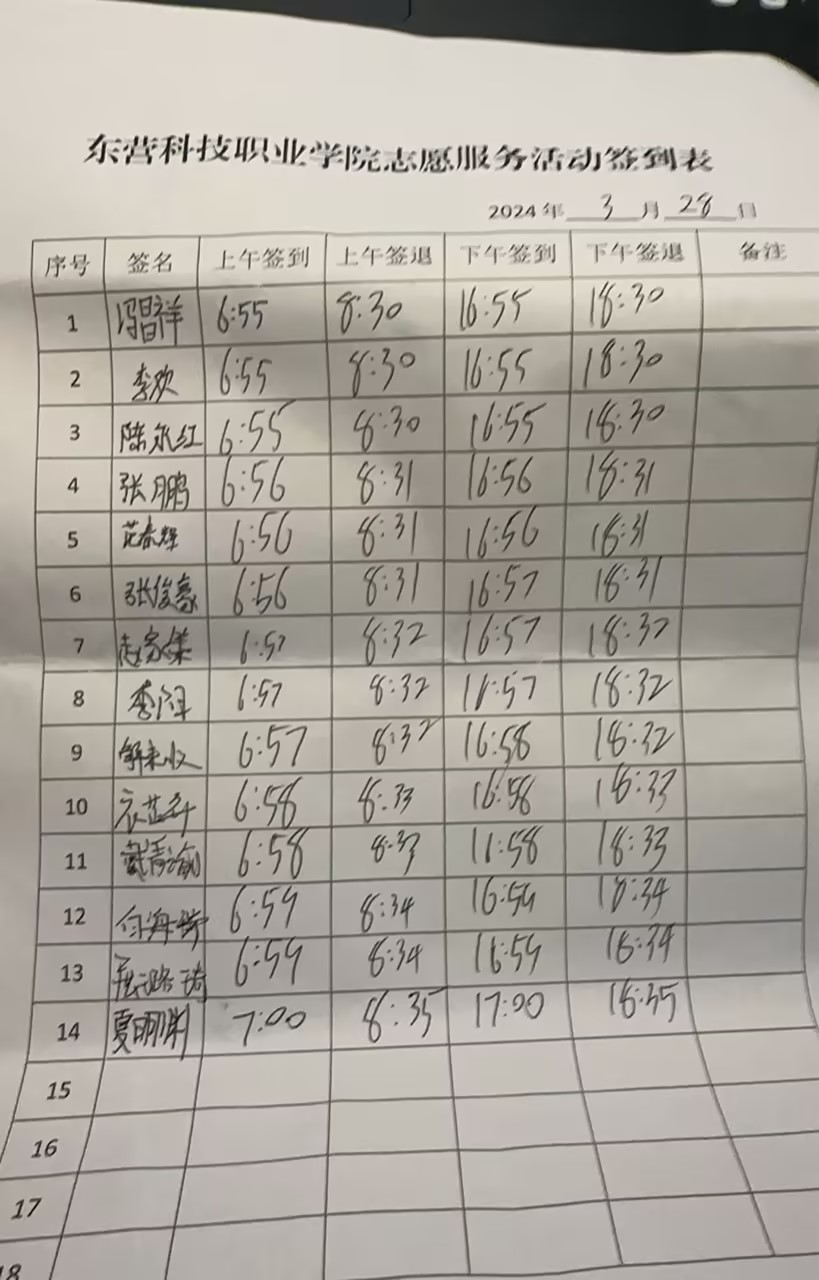 东营科技职业学院志愿服务活动签到表
2024 年 3 月 28 日
序号 签名 上午签到 上午签退 下午签到 下午签退 备注
1 冯昌祥 6:55 8:30 16:55 18:30
2 李欢 6:55 8:30 16:55 18:30
3 陈永红 6:55 8:30 16:55 18:30
4 张鹏 6:56 8:31 16:56 18:31
5 范春辉 6:56 8:31 16:56 18:31
6 张俊豪 6:56 8:31 16:57 18:31
7 6:57 8:32 16:57 18:32
8 6:57 8:32 16:57 18:32
9 6:57 8:32 16:58 18:32
10 6:58 8:33 16:58 18:33
11 6:58 8:33 16:58 18:33
12 6:59 8:34 16:59 18:34
13 6:59 8:34 16:59 18:34
14 7:00 8:35 17:00 18:35
15
16
17
18